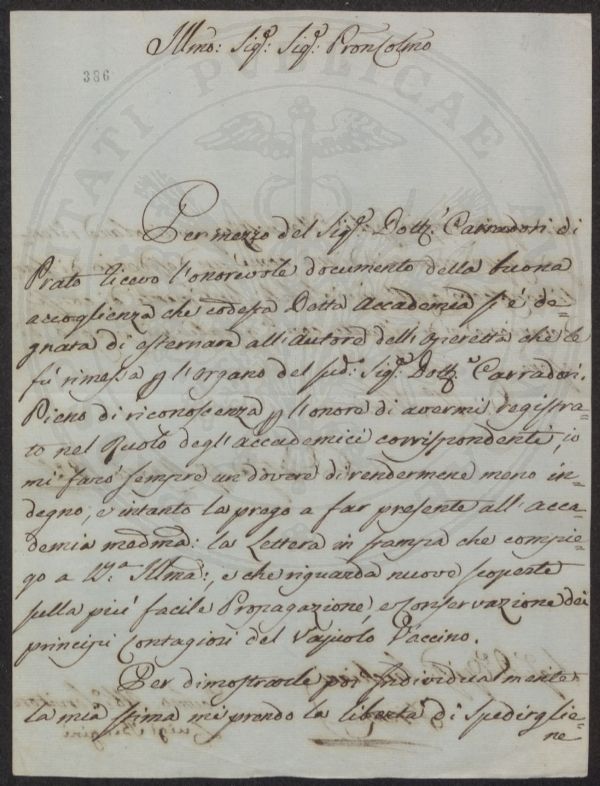 Illmo: Sig.e Sig.e Pron Colmo
386
Per mezzo del Sig.e Dott.e Carradori di
Prato ricevo l'onorevole documento della buona
accoglienza che codesta Dotta Accademia s'é de=
gnata di esternare all'Autore dell'Operetta che le
fù rimessa p l'organo del sud: Sig.e Dott.e Carradori.
Pieno di riconoscenza p l'onore di avermi registra=
to nel Ruolo degl'accademici corrispondenti, io
mi faró sempre un dovere di rendermene meno in=
degno, e intanto la prego a far presente all'acca=
demia medma: la Lettera in stampa che compie=
go a V.a Illma:, e che riguarda nuove scoperte
sulla più facile Propagazione, e conservazione dei
principj Contagiosi del Vajuolo Vaccino.
Per dimostrarle poi individualmente
la mia stima mi prendo la libertà di spedirglie=
ne